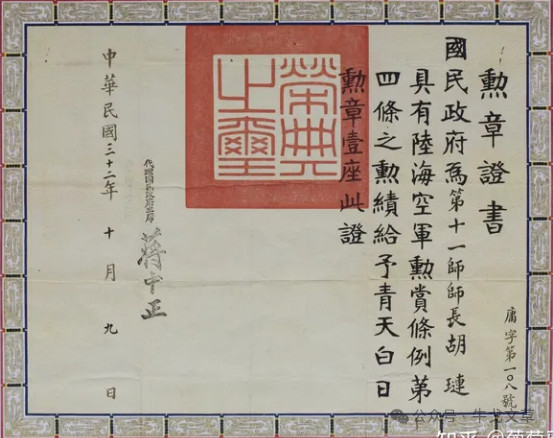 勳章證書
國民政府為第十一師師長胡璉
具有陸海空軍勳賞條例第
四條之勳績給予青天白日
勳章壹座此證
榮典之璽
庸字第一〇八號
代理國民政府主席
蔣中正
中華民國三十二年十月九日
公众号·牛戈文章
知乎